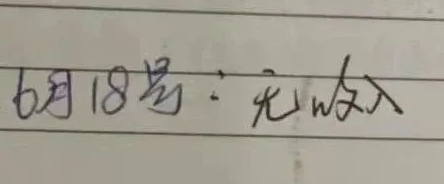 6月18号：无收入